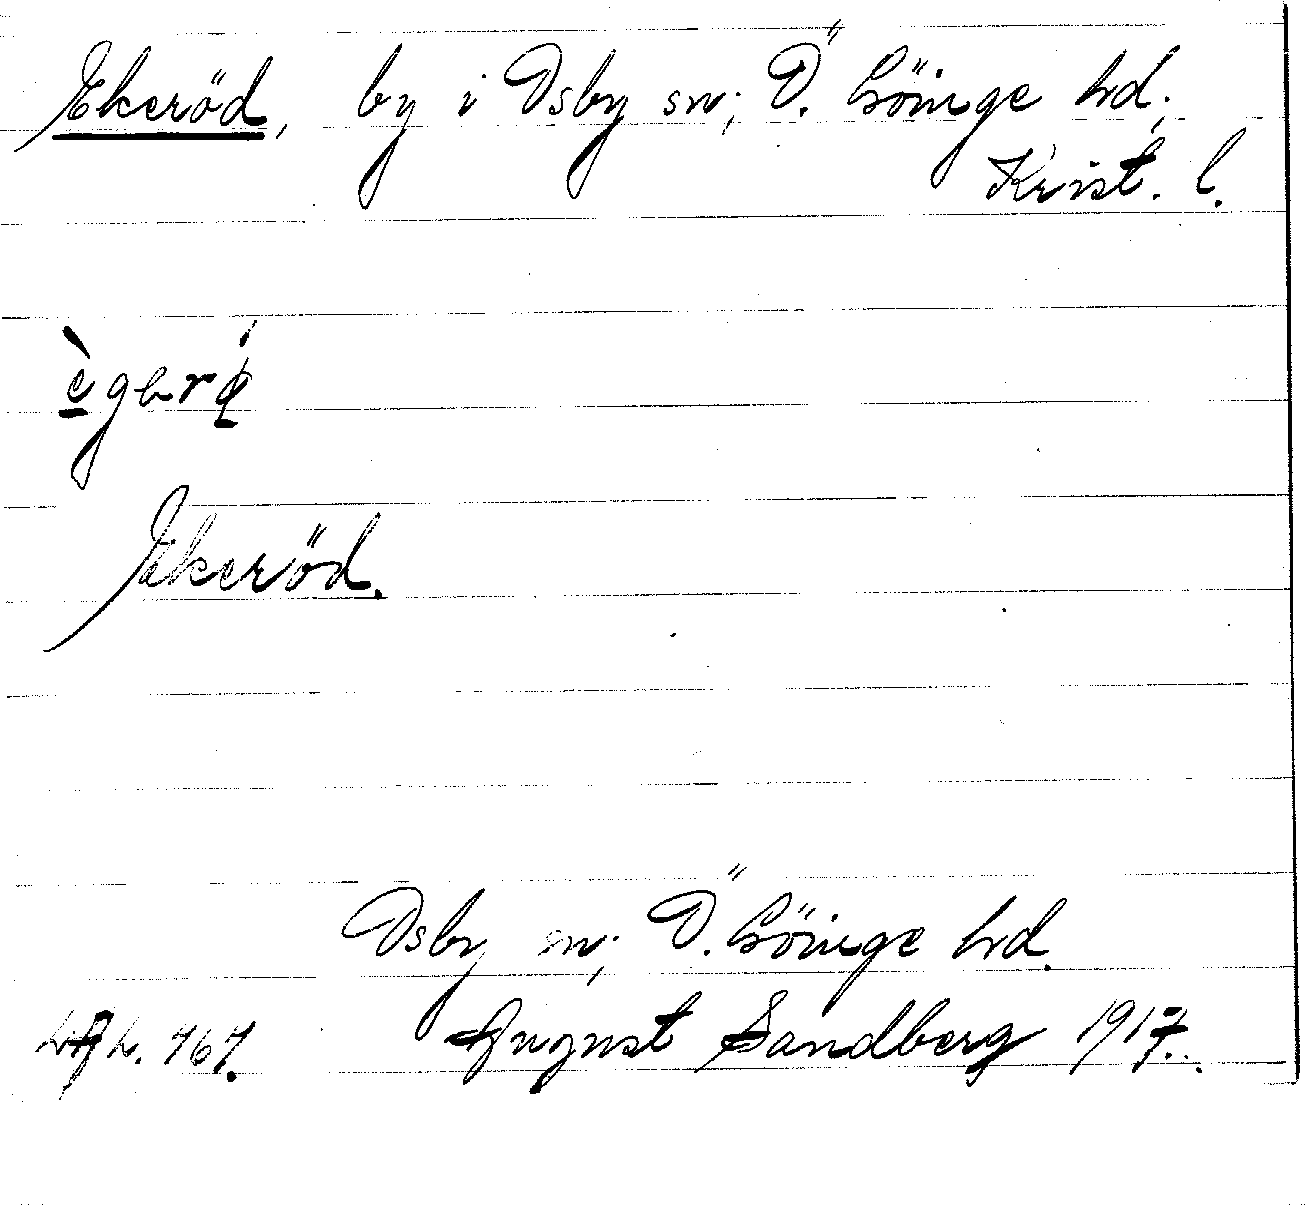 Ekeröd, by i Osby sn; Ö. Göinge hd;
Krist. l.
Ekeröd.
Osby sn; Ö. Göinge hd.
August Sandberg 1917.